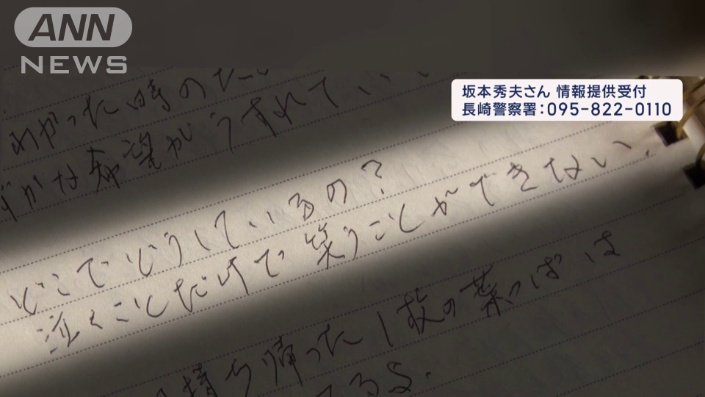 ANN
NEWS
坂本秀夫さん 情報提供受付
長崎警察署：095-822-0110
わかった時の
かな希望がうすれてい
どこでどうしているの？
泣くことだけで笑うことができない．
持ち帰った1枚の葉っぱは
てるよ．